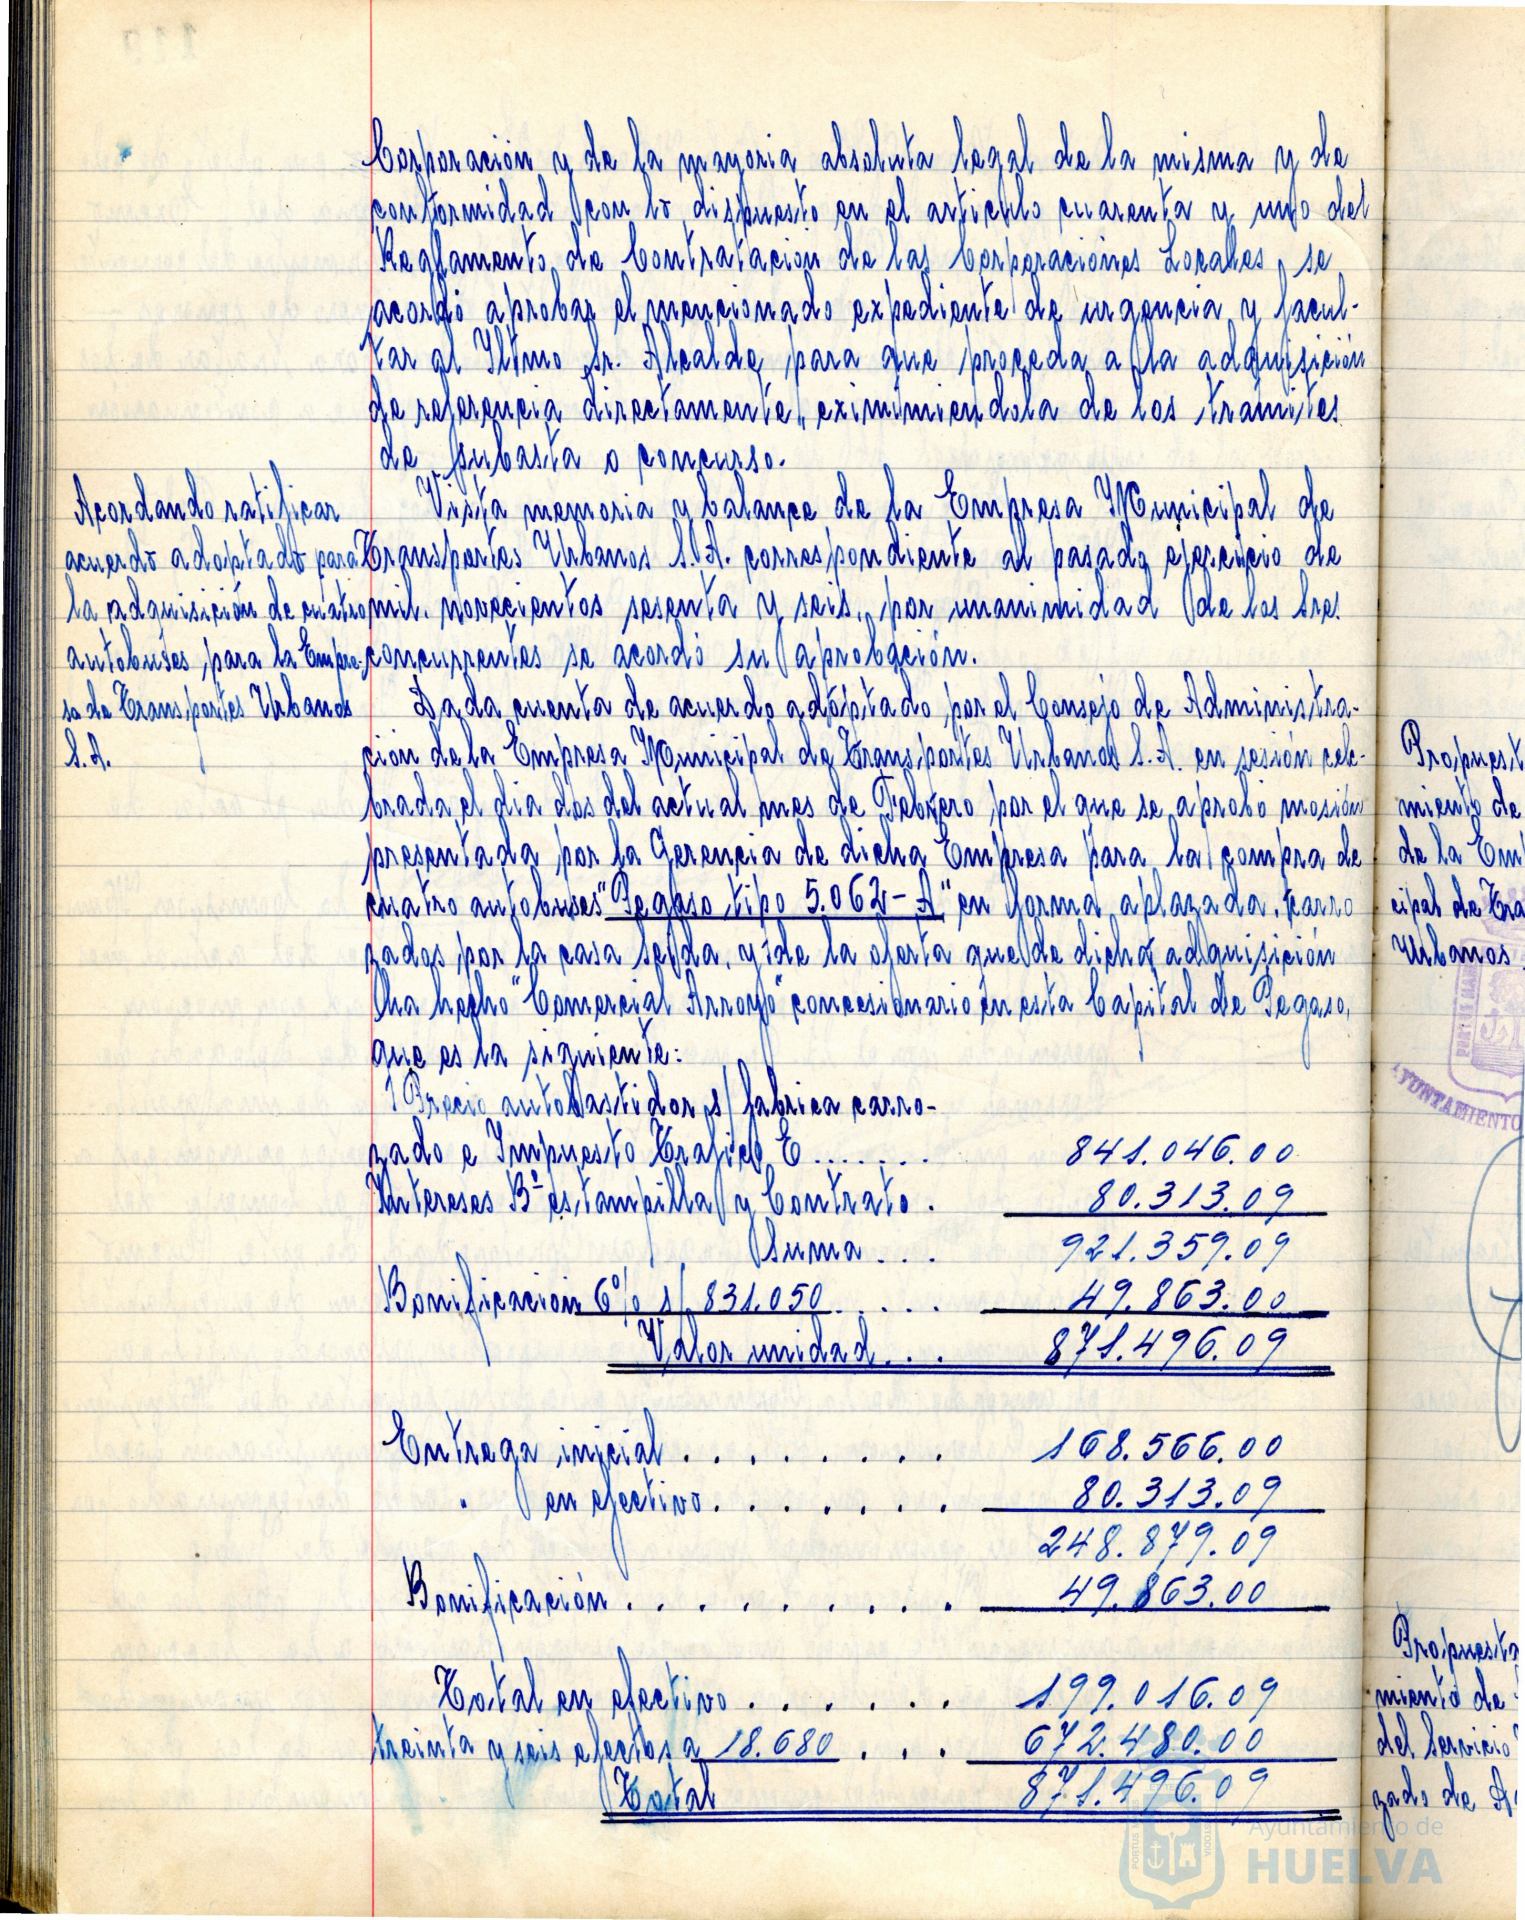 Corporación y de la mayoria absoluta legal de la misma y de
conformidad con lo dispuesto en el articulo cuarenta y uno del
Reglamento de Contratación de las Corporaciónes Locales, se
acordó aprobar el mencionado expediente de urgencia y facul-
tar al Iltmo Sr. Alcalde, para que proceda a la adquisición
de referencia directamente, eximimiendola de los tramites
de subasta o concurso.
Acordando ratificar
acuerdo adoptado para
la adquisición de cuatro
autobuses para la Empre-
sa de Transportes Urbanos
S.A.
Vista memoria y balance de la Empresa Municipal de
Transportes Urbanos S.A. correspondiente al pasado ejercicio de
mil novecientos sesenta y seis, por unanimidad de los Sres.
concurrentes se acordó su aprobación.
Dada cuenta de acuerdo adoptado por el Consejo de Administra-
ción de la Empresa Municipal de Transportes Urbanos S.A. en sesión cele-
brada el dia dos del actual mes de Febrero por el que se aprobo mosión
presentada por la Gerencia de dicha Empresa para la compra de
cuatro autobuses "Pegaso tipo 5.062-A" en forma aplazada, carro
zados por la casa Seida, y de la oferta que de dicha adquisición
ha hecho "Comercial Arroyo" concesionario en esta Capital de Pegaso,
que es la siguiente:
Precio autobastidor s/ fabrica carro-
zado e Impuesto Trafico E ....... 841.046.00
Intereses Bº estampilla y Contrato . 80.313.09
Suma ... 921.359.09
Bonificación 6% s/ 831.050 ..... 49.863.00
Valor unidad ... 871.496.09
Entrega inicial ........ 168.566.00
" en efectivo ....... 80.313.09
248.879.09
Bonificación .......... 49.863.00
Total en efectivo ...... 199.016.09
treinta y seis efectos a 18.680 ... 672.480.00
Total 871.496.09
Propuest
miento de
de la Em
cipal de Tra
Urbanos
AYUNTAMIENTO
Propuesta
miento de
del Servicio
zado de A
Ayuntamiento de
HUELVA